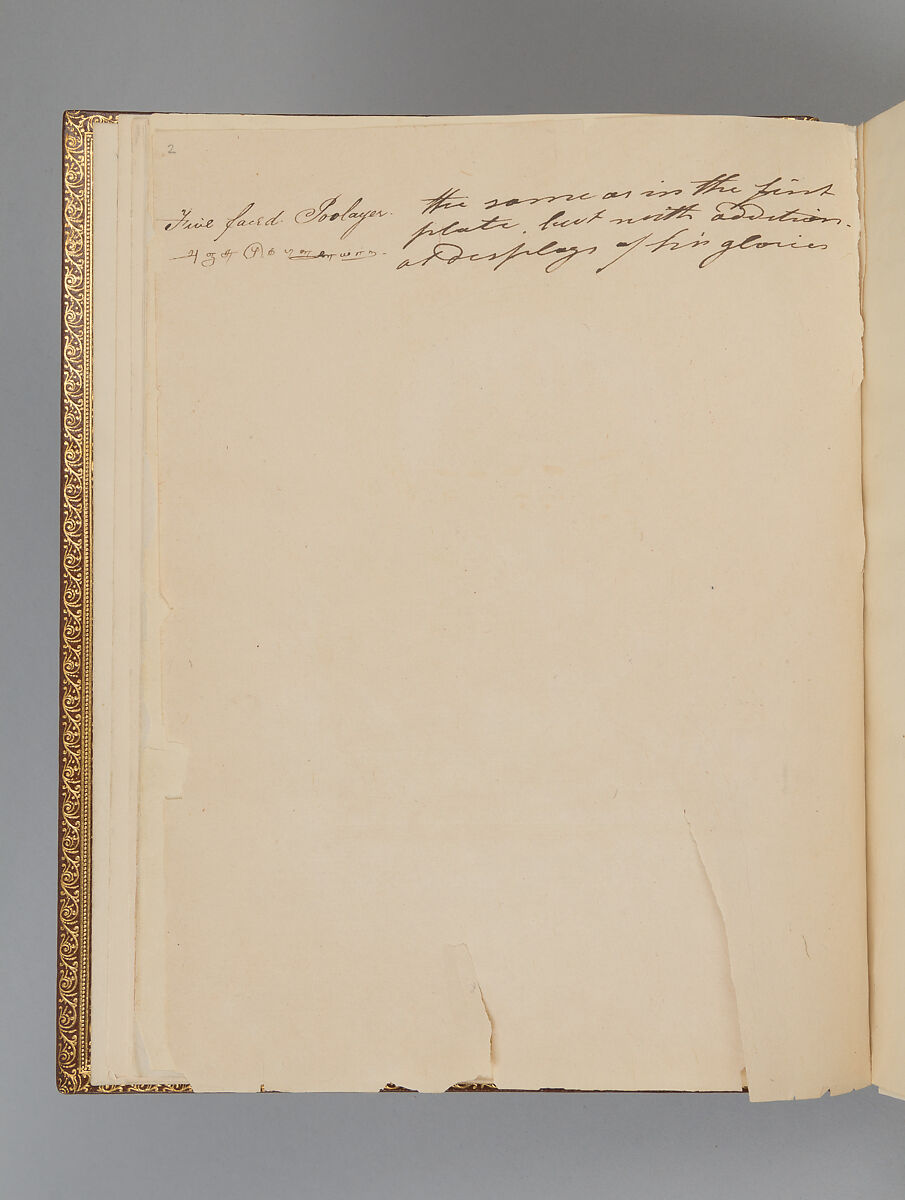 2
Five faced Poolayer.
the same as in the first
plate. but with addition.
al displays of his glories